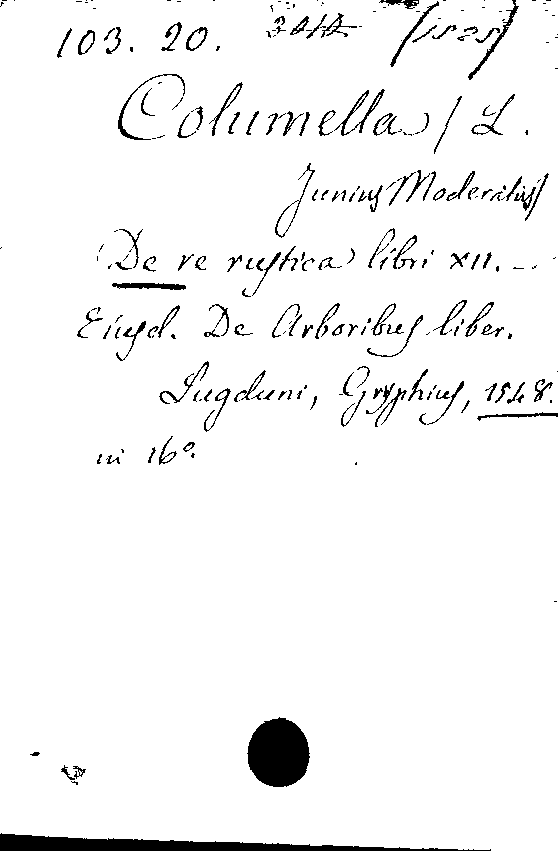 103. 20. (1525)
Columella / L.
Junius Moderatus /
De re rustica libri XII. –
Eiusd. De Arboribus liber.
Lugduni, Gryphius, 1548.
in 16°.